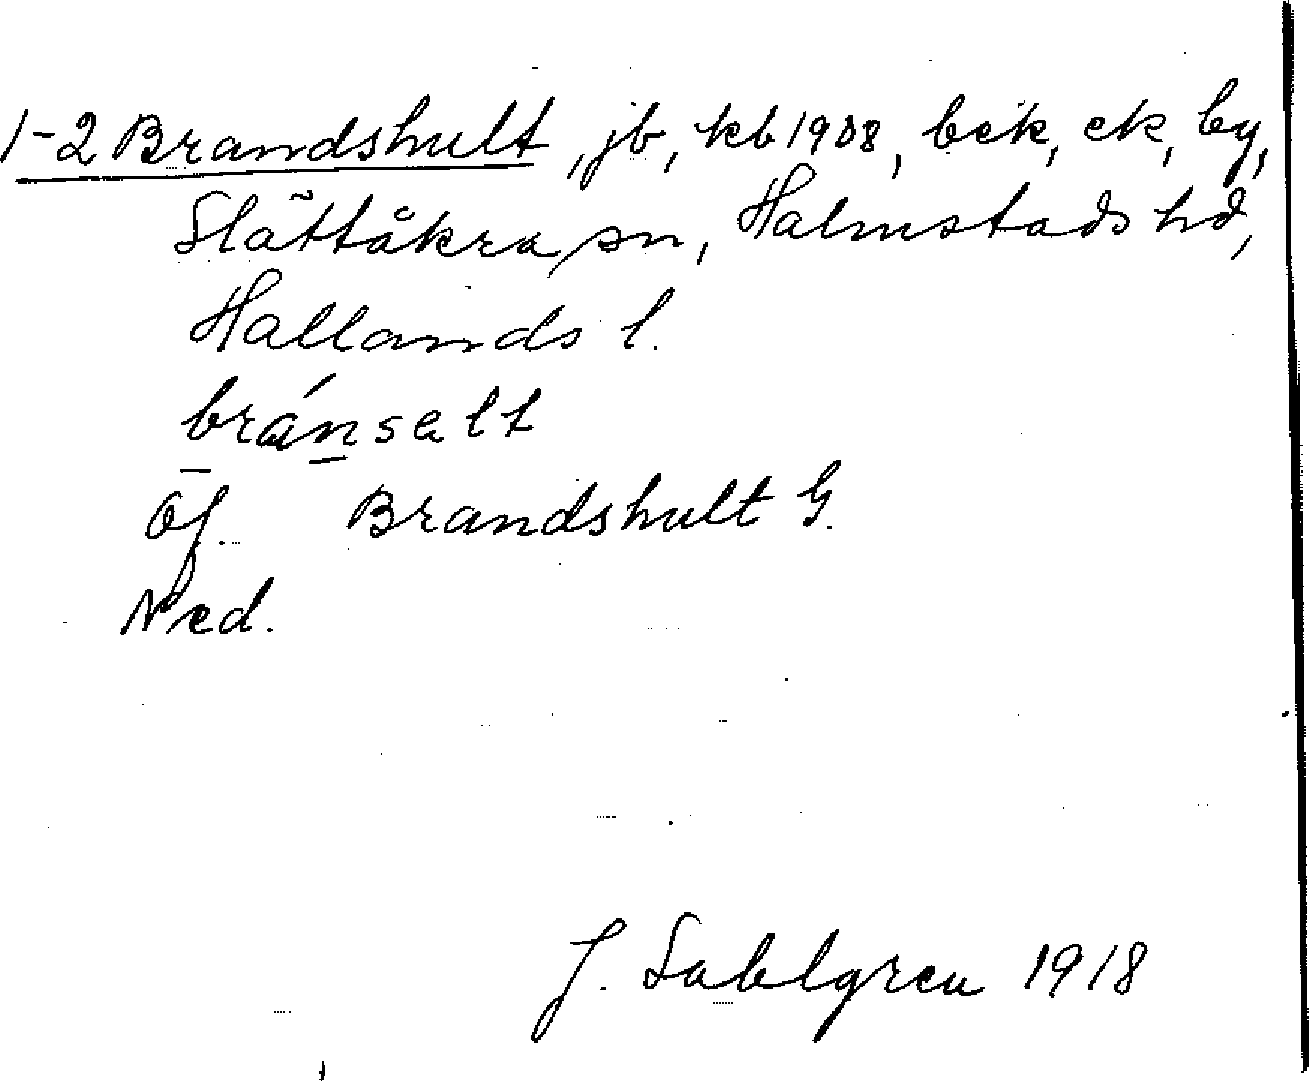 1-2 Brandshult, jb, kb 1908, bek, ek, by,
Slättåkra sn, Halmstads hd,
Hallands l.
bránsalt
Öf. Brandshult G.
Ned.
J. Sahlgren 1918